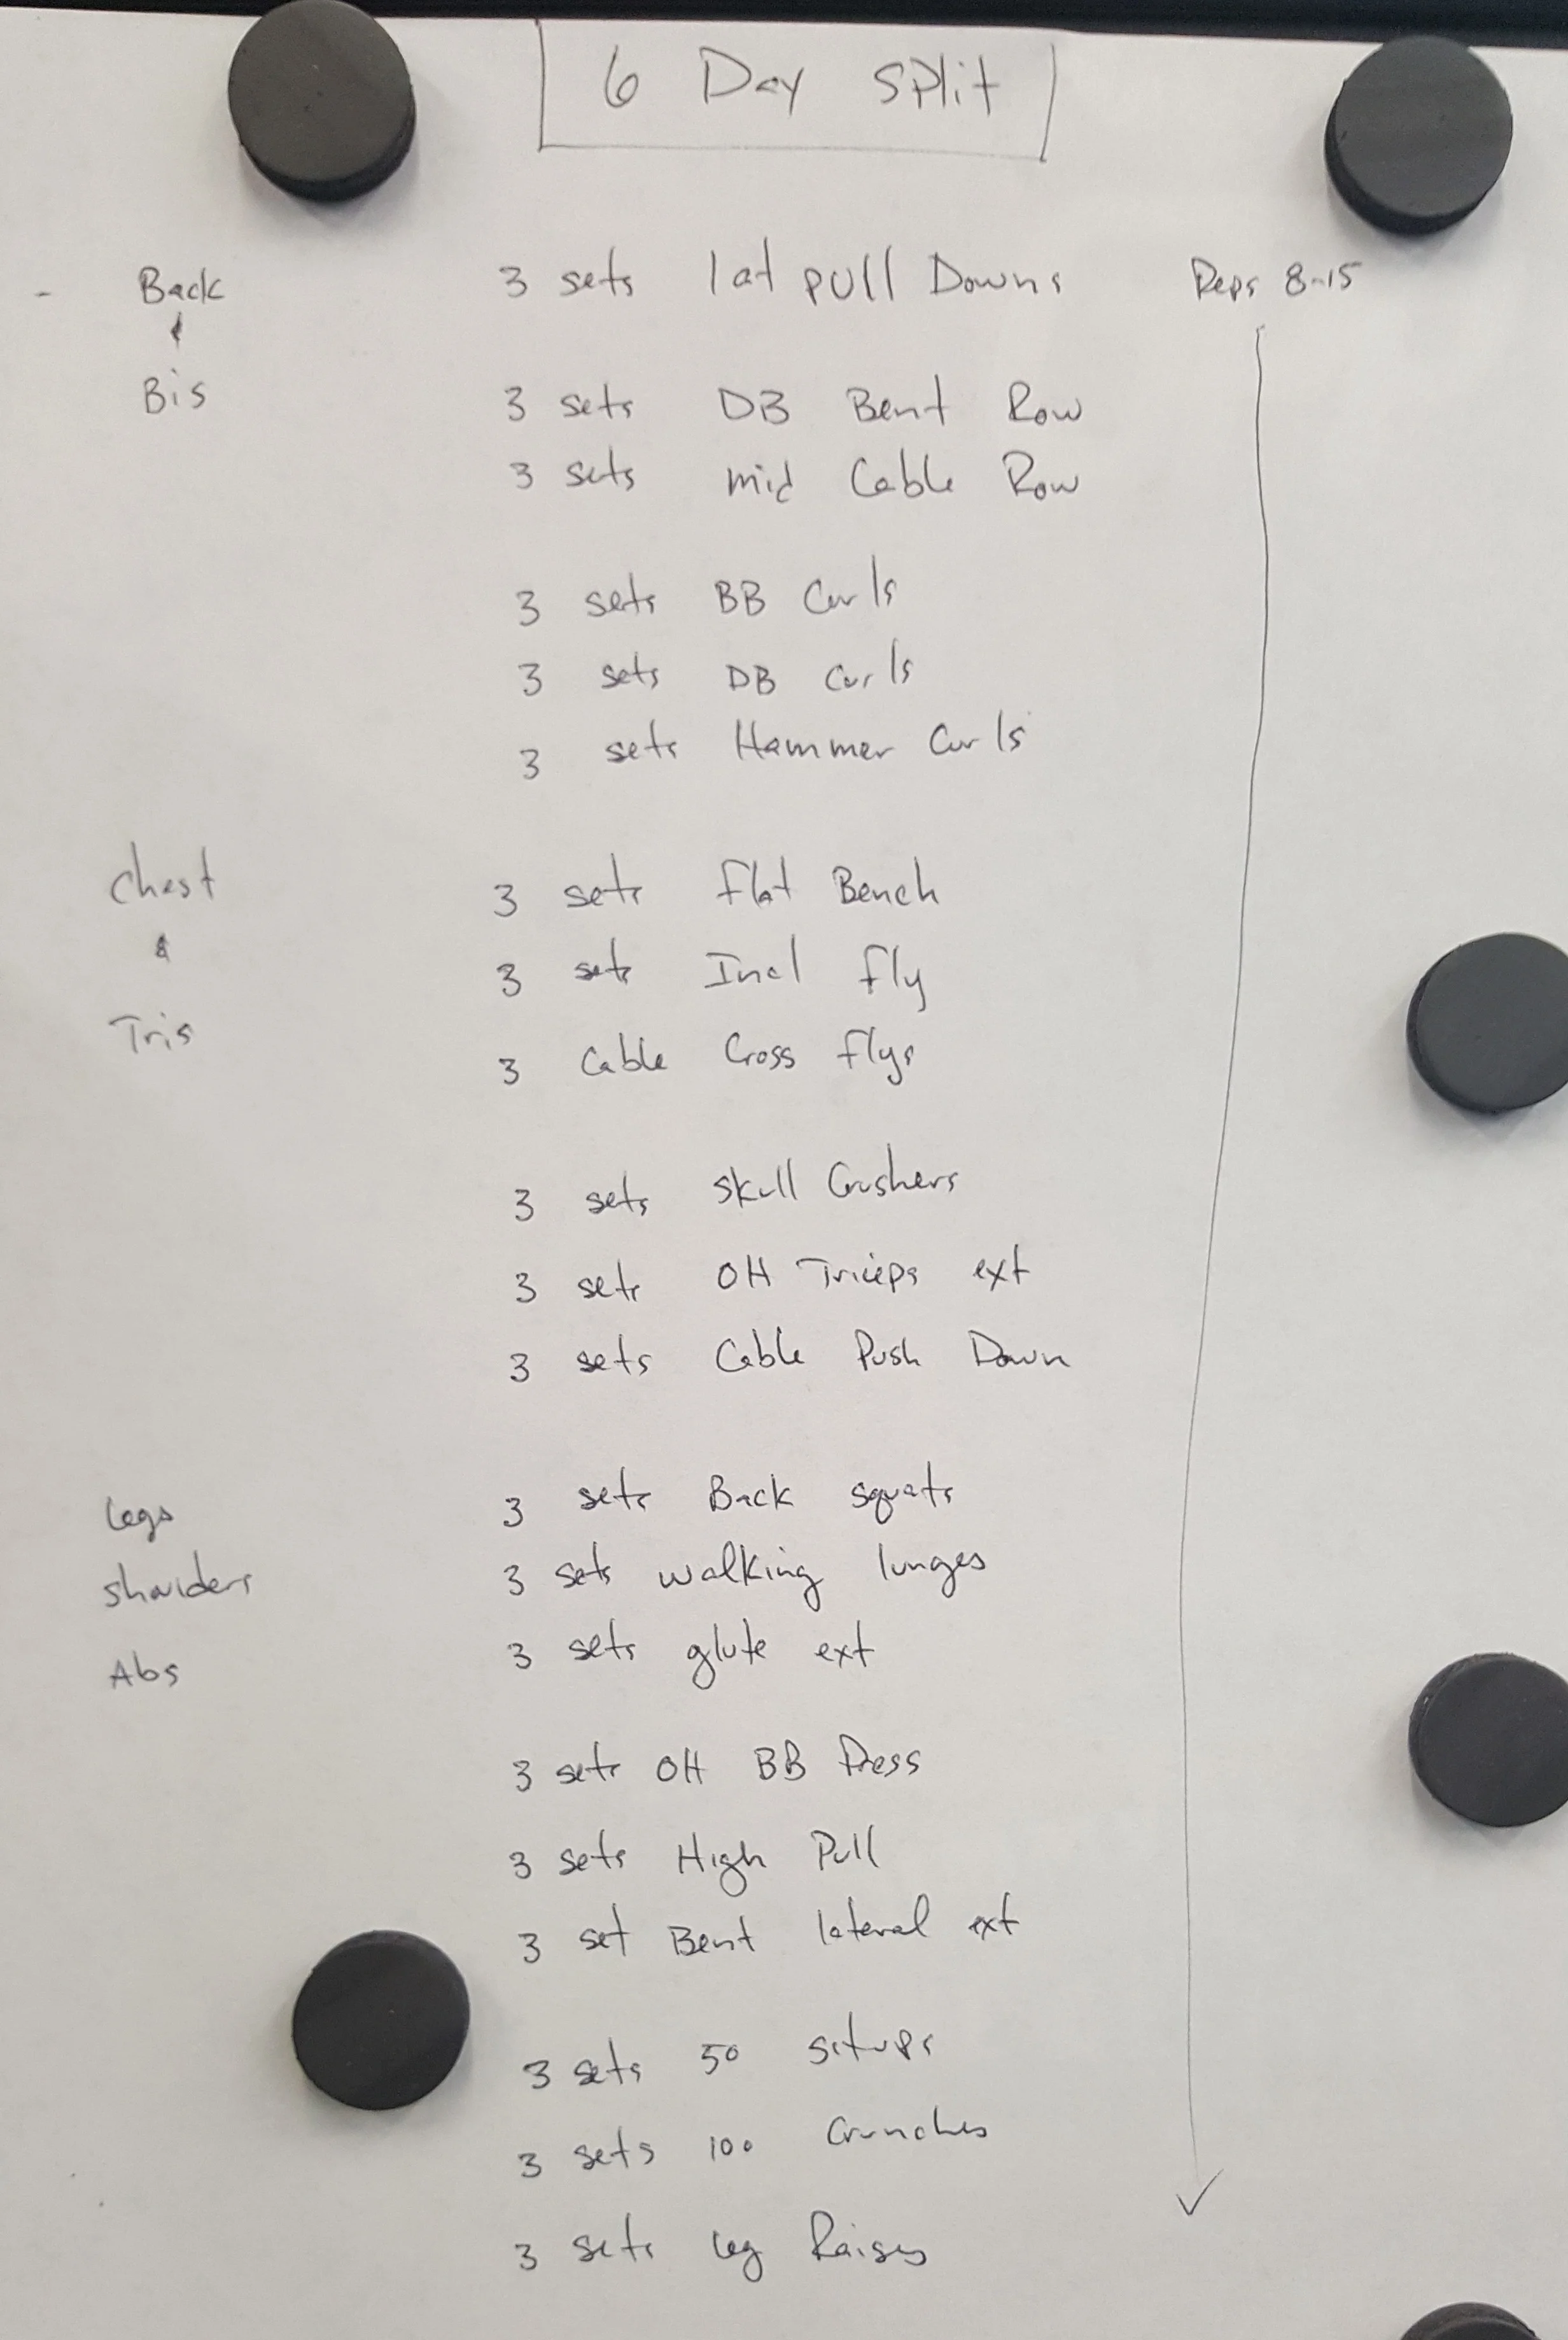 6 Day Split
- Back 3 sets lat pull Downs Reps 8-15
&
Bis 3 sets DB Bent Row
3 sets mid Cable Row
3 sets BB Curls
3 sets DB Curls
3 sets Hammer Curls
Chest 3 sets flat Bench
& 3 sets Incl fly
Tris 3 Cable Cross flys
3 sets Skull Crushers
3 sets OH Triceps ext
3 sets Cable Push Down
Legs 3 sets Back squats
shoulders 3 sets walking lunges
Abs 3 sets glute ext
3 sets OH BB Press
3 sets High Pull
3 set Bent lateral ext
3 sets 50 situps
3 sets 100 Crunches
3 sets Leg Raises